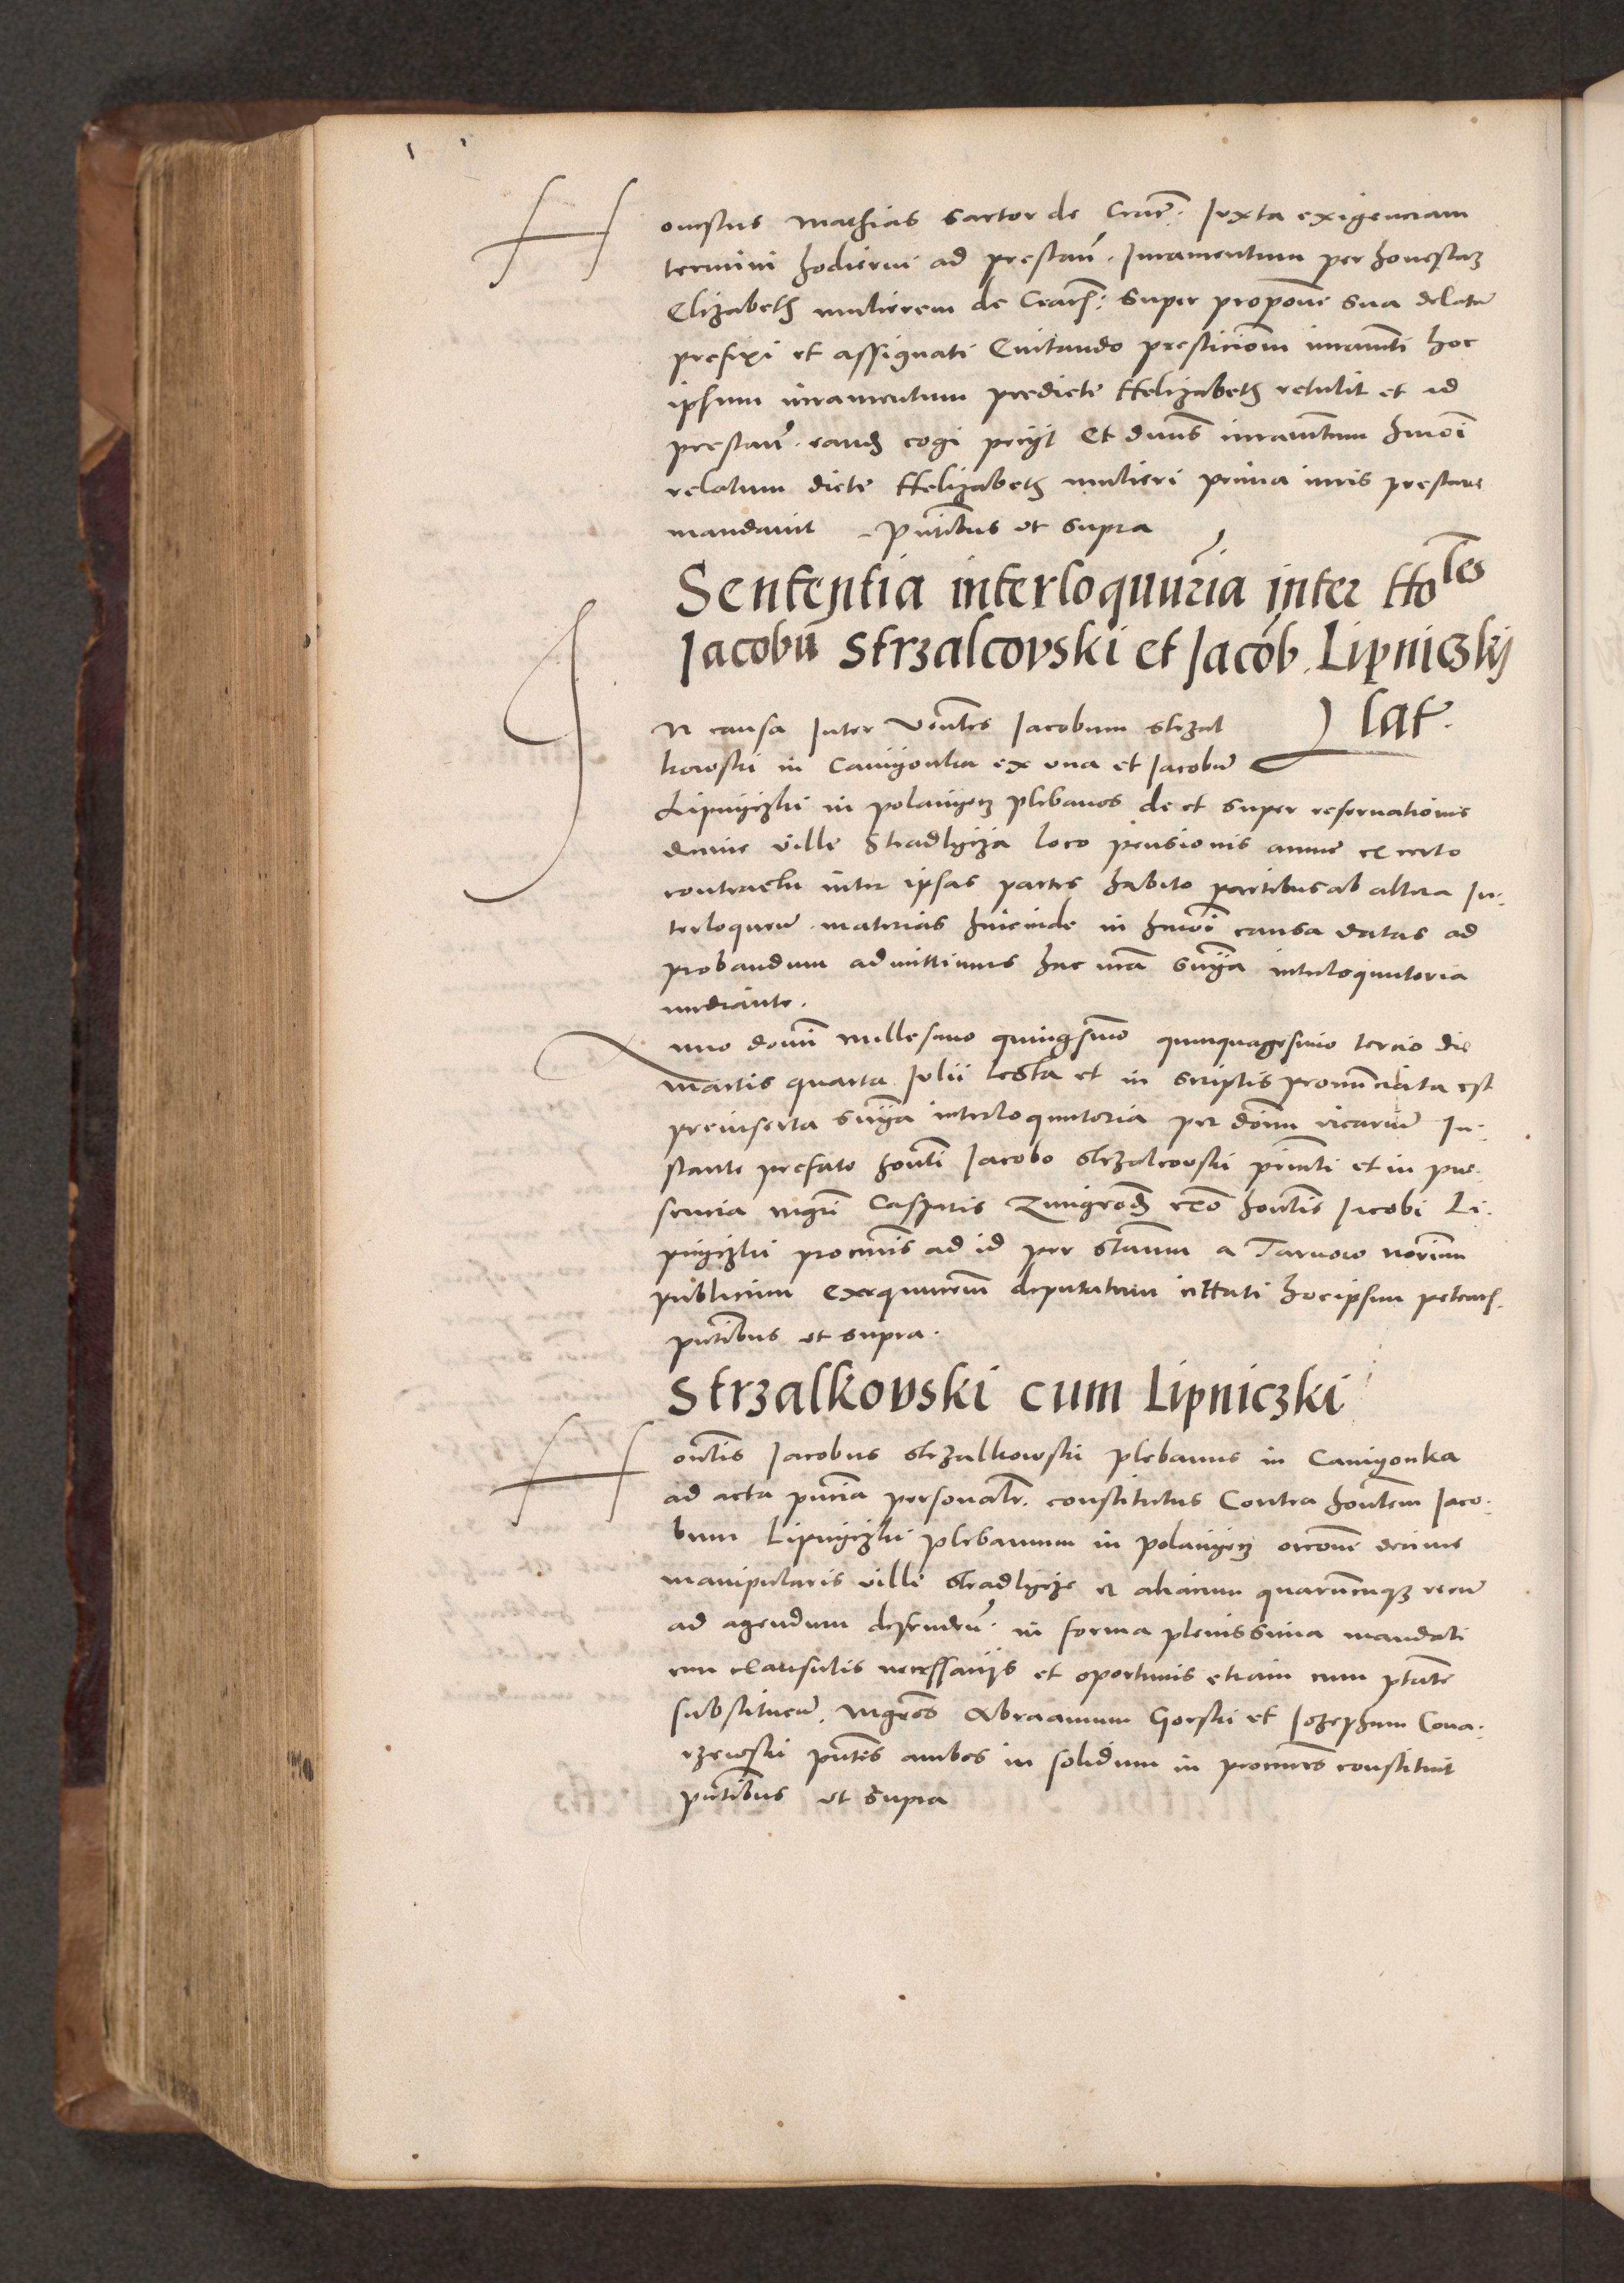 Honestus Mathias sartor de Crac̃. Juxta exigenciam
termini hodierni ad prestan̄. Juramentum per honestaꝫ
Elizabeth mulierem de Crac̃. super propone sua delatū
prefixi et assignati Evitando presticiōm iuramti hoc
ipsum iuramentum predicte Helizabeth retulit et id
prestan̄. eand cogi peciyt Et dnūs iuramtum hmōi
relatum dicte Helizabeth mulieri prima iuris prestare
mandavit Pntibus ut supra
Sententia interloquuria inter Hōles
Jacobū Strzalcovski et Jacob. Lipniczkÿ
lat.
IN causa Inter Venles Jacobum Strzal
kowski in Camyonka ex una et Jacobū
Lipnyczki in polanyecz plebanos de et super reservationis
decime ville Stradlycza loco pensionis annue ex certo
contractu inter ipsas partes habito partibus ab altera In-
terloquen̄. materias hincinde in hmōi causa datas ad
probandum admittimus hac nrā snīa interloquutoria
mediante.
Anno domi millesimo quingsimo quinquagesimo tercio die
Martis quarta Julii lecta et in scriptis pronunciata est
preinserta snīa interloquutoria per dōnm vicariū In-
stante prefato honli Jacobo Strzalcovski pñti et in pre-
sencia mgri Casparis Zmigrod rčo honlis Jacobi Li-
pnyczki procuris ad id per Stanm a Tarnow norium
publicum exequutorem deputatum cittati hoc ipsum petents.
pntibus ut supra.
Strzalkovski cum Lipniczki
Honlis Jacobus Strzalkowski plebanus in Camyonka
ad acta pncia personalr. constitutus Contra honlem Jaco-
bum Lipnyczki plebanum in polanyecz occone decime
manipularis ville Stradlycze et aliarum quarumcuqꝫ rerū
ad agendum defenden̄. in forma plenissima mandati
cum clausulis necessariis et oportunis etiam cum ptate
substituen̄. Mgros Abraamum Gorski et Jozephum Cona-
rzewski pntes ambos in solidum in procures constituit
pntibus ut supra